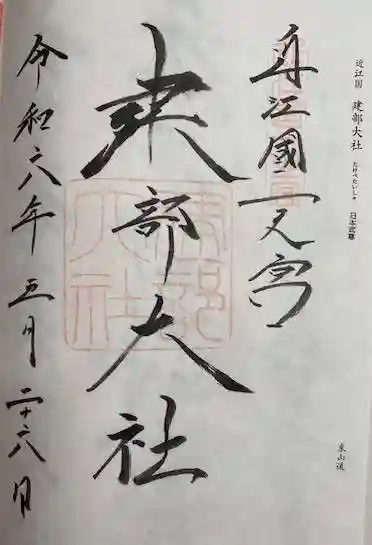 近江国 建部大社 日本武尊
たけべたいしゃ
東山道
近江國一之宮
建部大社
建部
大社
令和六年五月二十六日